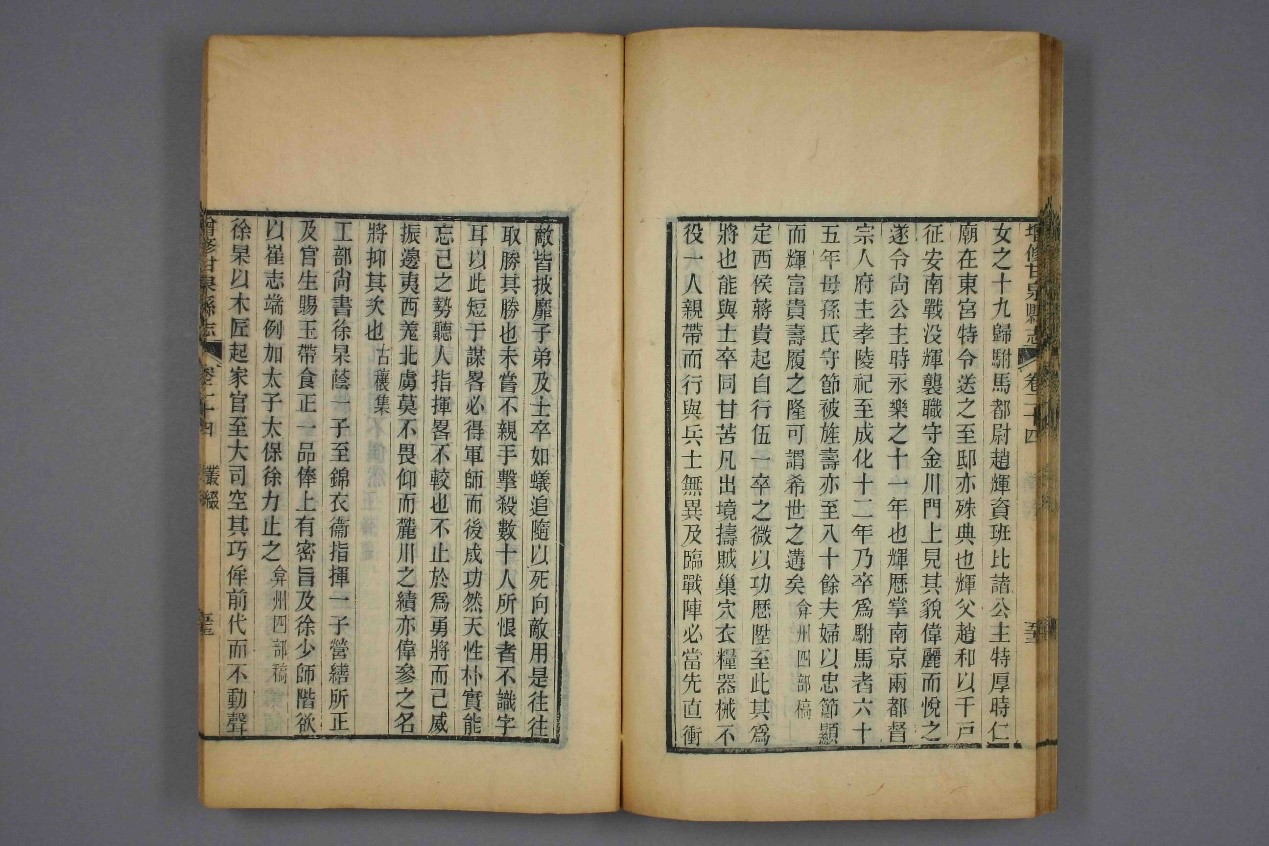 增修甘泉縣志 卷二十四
女之十九歸駙馬都尉趙輝資班比諸公主特厚時仁
廟在東宮特令送之至邸亦殊典也輝父趙和以千戸
征安南戰没輝襲職守金川門上見其貌偉麗而悅之
遂令尙公主時永樂之十一年也輝歴掌南京兩都督
宗人府主孝陵祀至成化十二年乃卒爲駙馬者六十
五年母孫氏守節被旌壽亦至八十餘夫婦以忠節顯
而輝富貴壽履之隆可謂希世之遘矣 弇州四部稿
定西侯蔣貴起自行伍一卒之微以功歴陞至此其爲
將也能與士卒同甘苦凡出境擣賊巢穴衣糧器械不
役一人親帶而行與兵士無異及臨戰陣必當先直衝
敵皆披靡子弟及士卒如蟻追隨以死向敵用是往往
取勝其勝也未嘗不親手擊殺數十人所恨者不識字
耳以此短于謀畧必得軍師而後成功然天性朴實能
忘己之勢聽人指揮畧不較也不止於爲勇將而已威
振邊夷西羗北虜莫不畏仰而麓川之績亦偉參之名
將抑其亥也 古穰集
工部尙書徐杲蔭一子至錦衣衞指揮一子營繕所正
及官生賜玉帶食正一品俸上有密旨及徐少師階欲
以崔志端例加太子太保徐力止之 弇州四部稿
徐杲以木匠起家官至大司空其巧侔前代而不動聲
增修甘泉縣志 卷二十四 叢綴